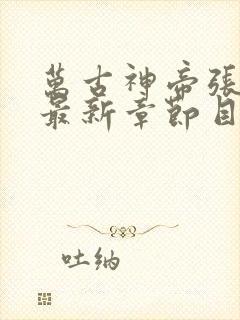 萬古神帝張
最新章節目
吐納